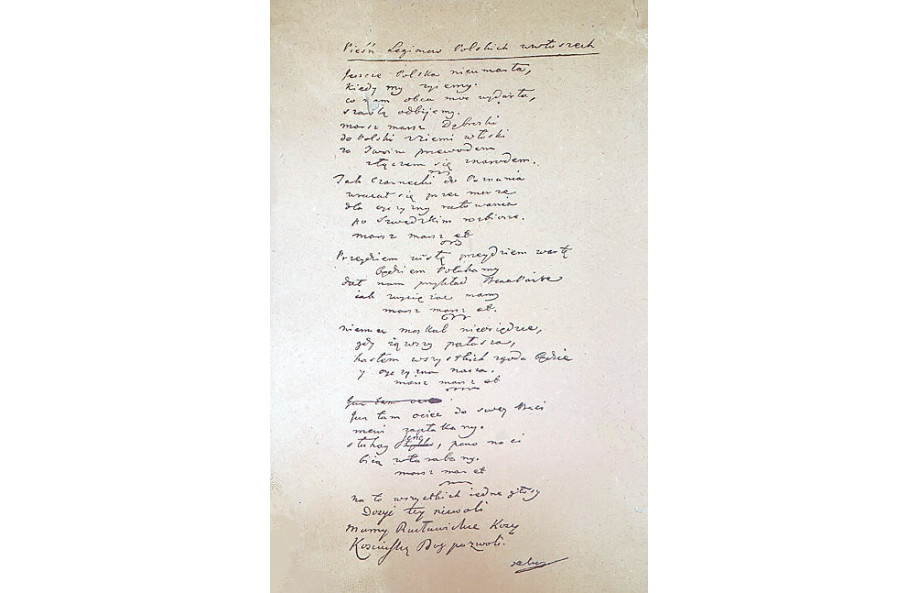 Pieśń Legionów Polskich we Włoszech
Jeszcze Polska nieumarła,
kiedy my żyiemy.
co nam obca moc wydarła,
szablą odbijemy.
marsz marsz Dąbroski
do Polski z ziemi włoski
za Twoim przewodem
złączem się z narodem.
Jak Czarnecki do Poznania
wracał się przez morze
dla oyczyzny ratowania
po Szwedzkim rozbiorze.
marsz marsz et
Przejdziem Wisłę przejdziem Wartę
będziem Polakamy
dał nam przykład Bonaparte
iak zwyciężać mamy
marsz marsz et.
niemiec moskal nieosiędzie,
gdy iąwszy pałasza,
hasłem wszystkich zgoda będzie
y oyczyzna nasza.
marsz marsz et
Już tam
Już tam ociec do swey Basi
mówi zapłakany.
słuchay jeno, pono nasi
biią w tarabany.
marsz mar et
na to wszystkich iedne głosy
Dosyć tey niewoli
Mamy Racławickie Kosy
Kościuszkę Bóg pozwoli.